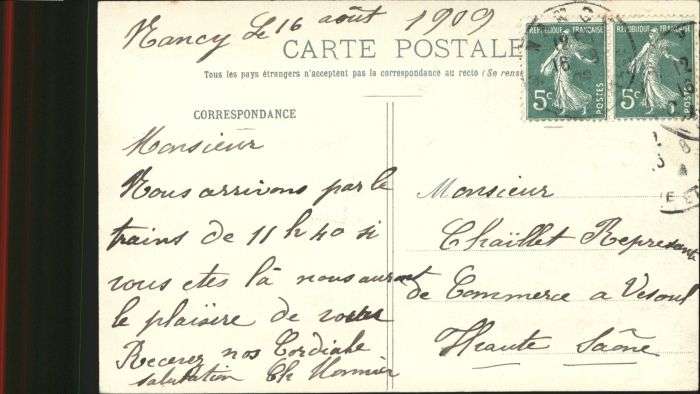 Nancy le 16 août 1909
CARTE POSTALE
Tous les pays étrangers n'acceptent pas la correspondance au recto (Se rense
CORRESPONDANCE
Monsieur
Nous arrivons par le
trains de 11 h 40 si
vous etes là nous auront
le plaisire de vous
Recevez nos Cordiale
salutation Ch Monnier
REPUBLIQUE FRANÇAISE
5c
POSTES
REPUBLIQUE FRANÇAISE
5c
POSTES
Monsieur
Chaïllet Represant
de Commerce a Vesoul
Haute Saône